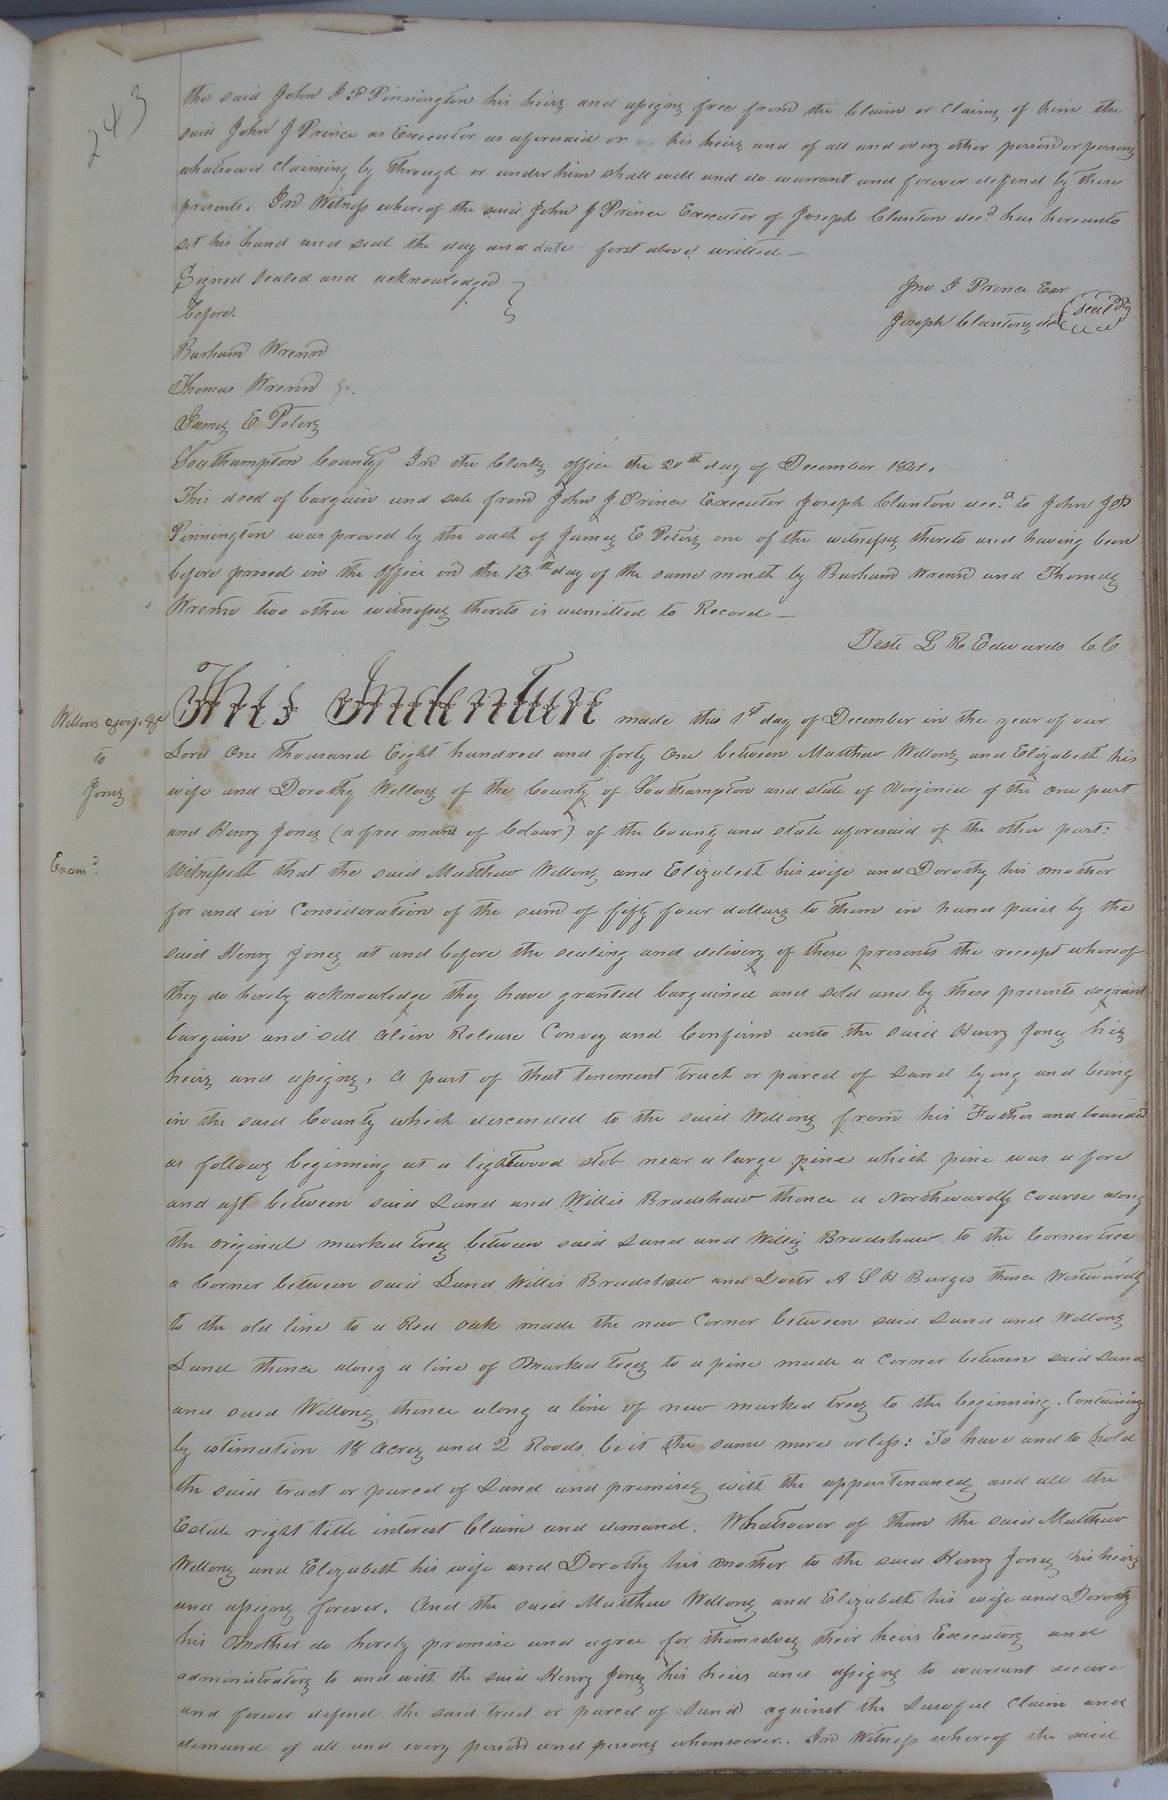 243
the said John J P Pinnington his heirs and assigns free from the claim or claims of him the
said John J Prince as Executor as aforesaid or his heirs and of all and every other person or persons
whatsoever claiming by through or under him shall will and do warrant and forever defend by these
presents. In Witness whereof the said John J Prince Executor of Joseph Clanton decd has hereunto
set his hand and seal the day and date first above written —
Signed sealed and acknowledged }
before.
Jno J Prince Exr
Joseph Clantons dcd (seal)
Barham Wrenn
Thomas Wrenn Jr.
James E Peters
Southampton County In the Clerks office the 20th day of December 1841.
This deed of bargain and sale from John J Prince Executor Joseph Clanton decd. to John J P
Pinnington was proved by the oath of James E Peters one of the witnesses thereto and having been
before proved in the office on the 13th day of the same month by Barham Wrenn and Thomas
Wrenn two other witnesses thereto is admitted to Record —
Teste L R Edwards C.C
Wellons &c
to
Jones
Examd.
This Indenture made this 1st day of December in the year of our
Lord One thousand Eight hundred and forty One between Matthew Wellons and Elizabeth his
wife and Dorothy Wellons of the County of Southampton and state of Virginia of the one part
and Henry Jones (a free man of Colour) of the County and state aforesaid of the other part:
Witnesseth that the said Matthew Wellons and Elizabeth his wife and Dorothy his mother
for and in Consideration of the sum of fifty four dollars to them in hand paid by the
said Henry Jones at and before the sealing and delivery of these presents the receipt whereof
they do hereby acknowledge they have granted bargained and sold and by these presents do grant
bargain and sell alien Release Convey and Confirm unto the said Henry Jones his
heirs and assigns, a part of that tenement tract or parcel of Land lying and being
in the said County which descended to the said Wellons from his Father and bounded
as follows beginning at a lightwood stob near a large pine which pine was a fore
and aft between said Land and Willis Bradshaw thence a Northwardly course along
the original marked trees between said Land and Willis Bradshaw to the Corner tree
a Corner between said Land Willis Bradshaw and Doctr A S H Burges thence Westwardly
to the old line to a Red oak made the new Corner between said Land and Wellons
Land thence along a line of Marked trees to a pine made a Corner between said Land
and said Wellons, thence along a line of new marked trees to the beginning. Containing
by estimation 18 acres and 2 Roods be it the same more or less: To have and to hold
the said tract or parcel of Land and premises with the appurtenances and all the
Estate right title interest Claim and demand. Whatsoever of them the said Matthew
Wellons and Elizabeth his wife and Dorothy his mother to the said Henry Jones his heirs
and assigns forever. And the said Matthew Wellons and Elizabeth his wife and Dorothy
his mother do hereby promise and agree for themselves their heirs Executors and
administrators to and with the said Henry Jones his heirs and assigns to warrant secure
and forever defend the said tract or parcel of Land against the Lawful claim and
demand of all and every person and persons whomsoever. In Witness whereof the said